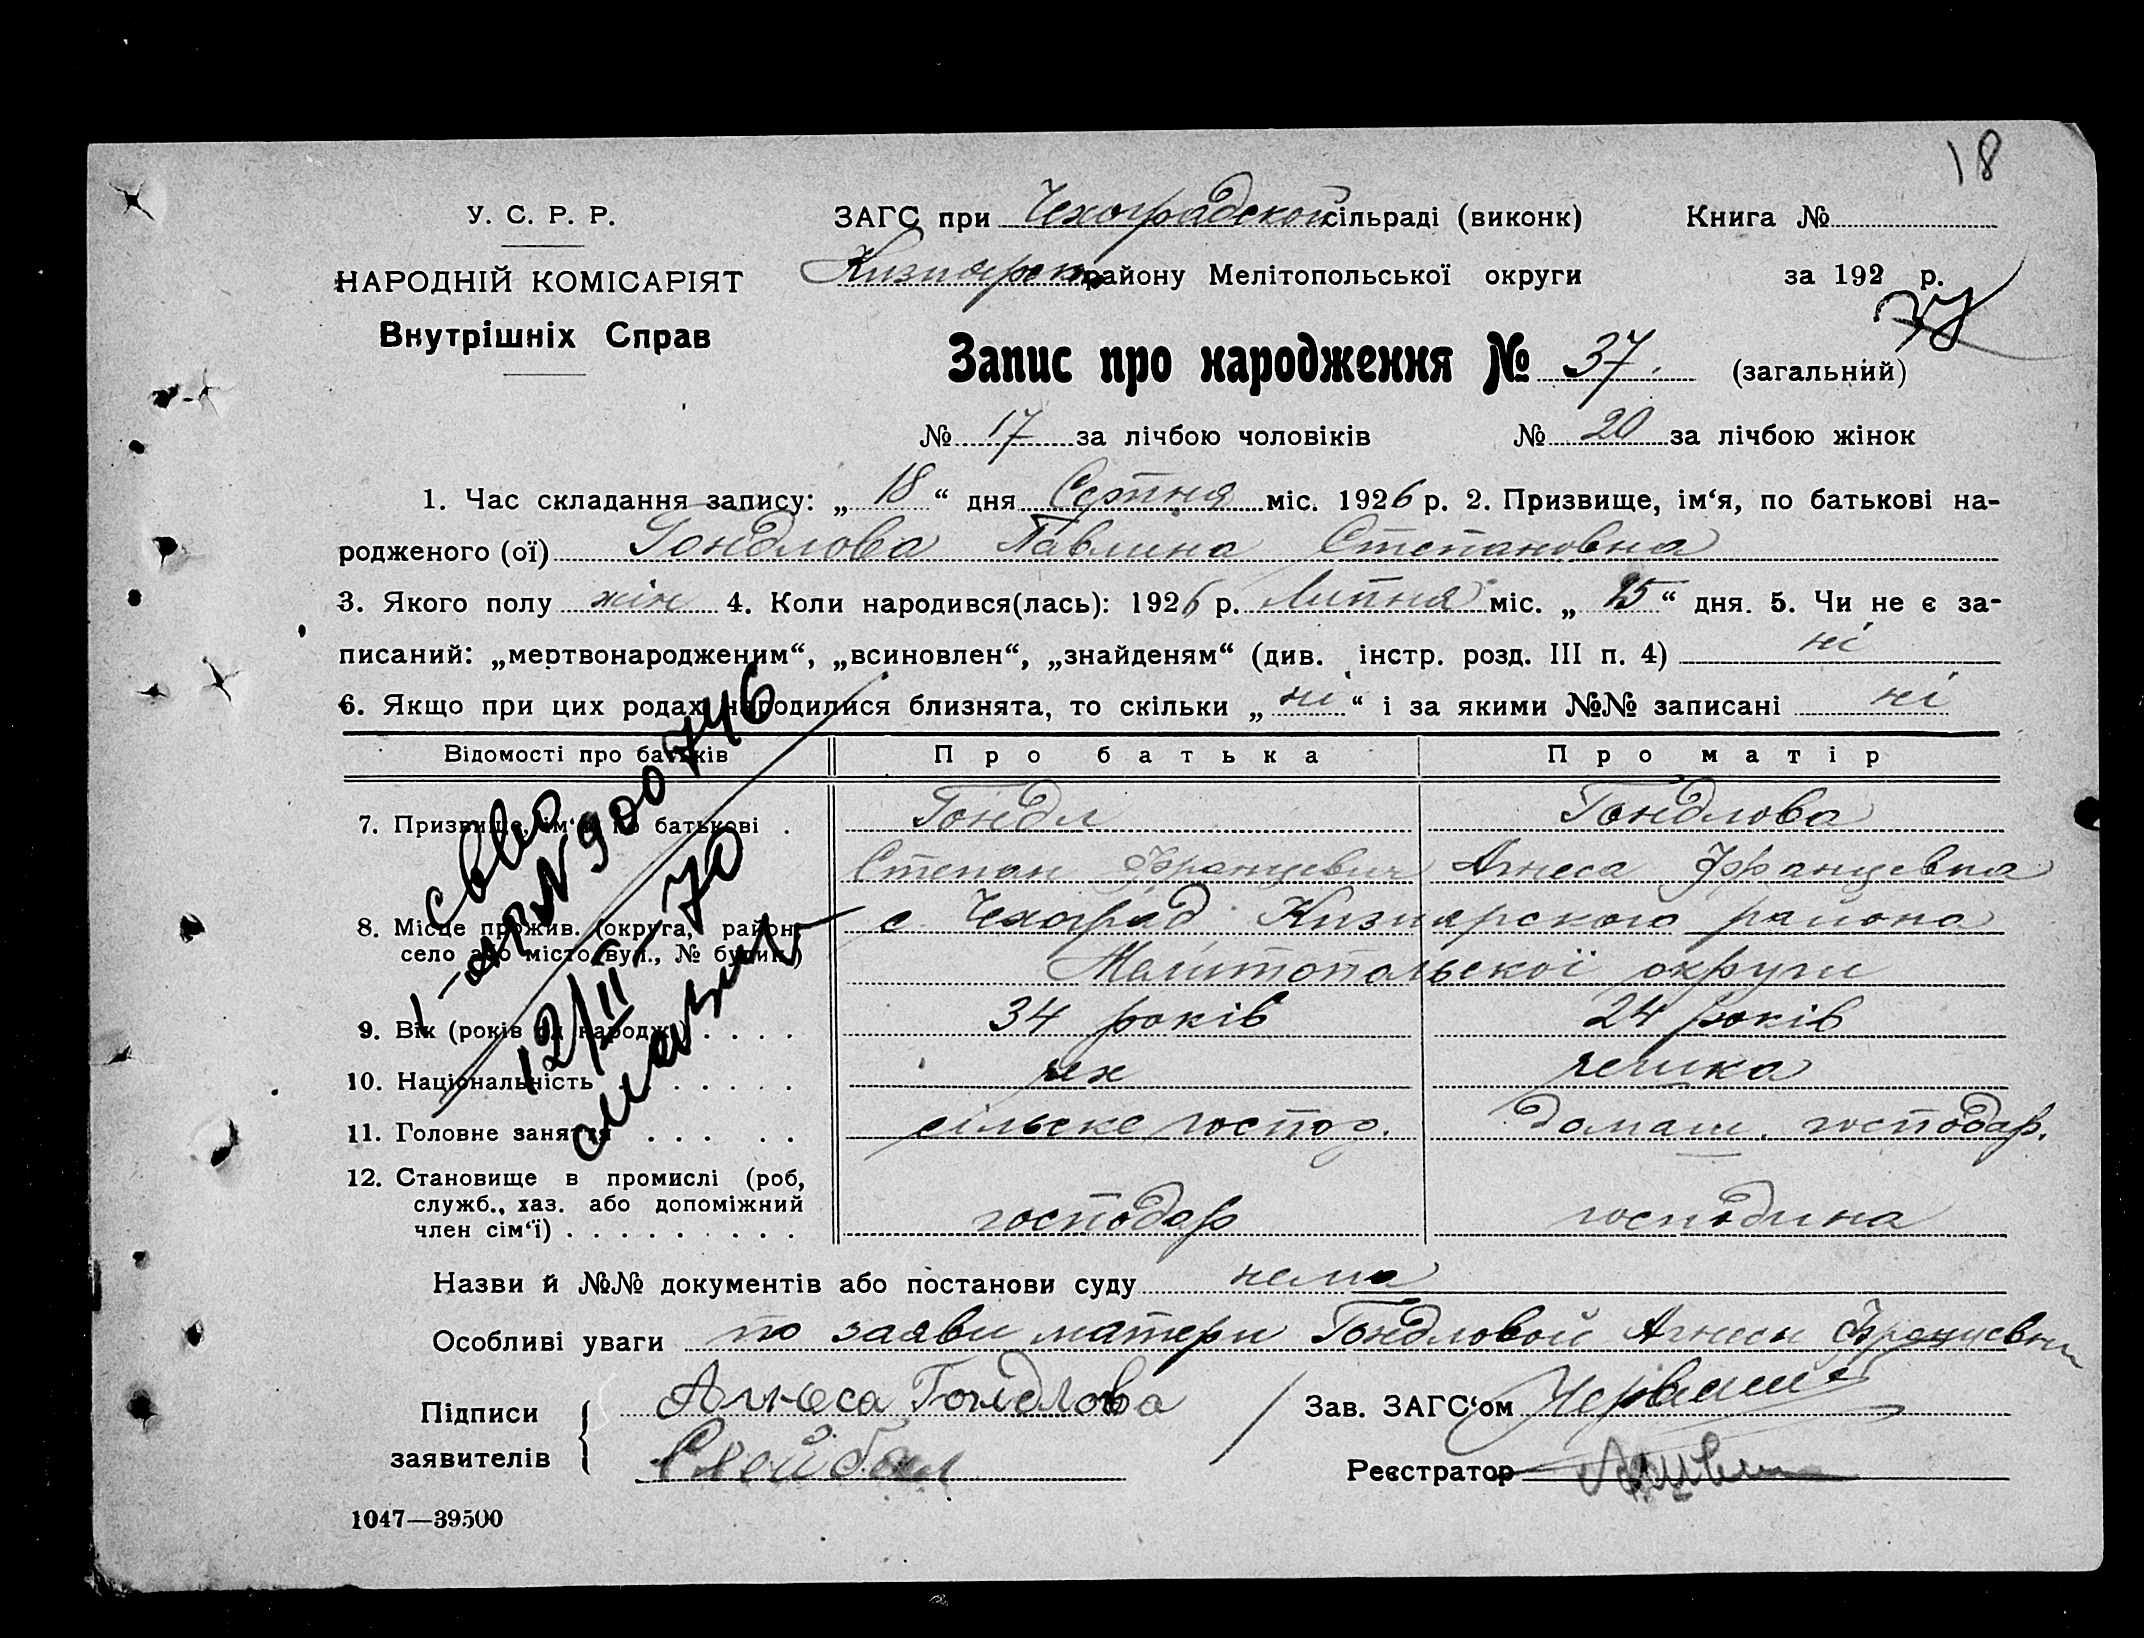 18
У. С. Р. Р.
НАРОДНІЙ КОМІСАРІЯТ
Внутрішніх Справ
ЗАГС при Чехоградской сільраді (виконк)
Кизиярск району Мелітопольської округи
Книга №
за 192 р.
Запис про народження № 37. (загальний)
№ 17 за лічбою чоловіків № 20 за лічбою жінок
1. Час складання запису: „ 18 “ дня Серпня міс. 1926 р. 2. Призвище, ім‘я, по батькові на-
родженого (ої) Гондлова Павлина Степановна
3. Якого полу жін 4. Коли народився(лась): 1926 р. Липня міс. „ 25 “ дня. 5. Чи не є за-
писаний: „мертвонародженим“, „всиновлен“, „знайденям“ (див. інстр. розд. III п. 4) ні
6. Якщо при цих родах народилися близнята, то скільки „ ні “ і за якими №№ записані ні
Відомості про батьків Про батька Про матір
7. Призвище, ім‘я, по батькові . Гондл Гондлова
Степан Францевич Агнеса Францевна
8. Місце прожив. (округа, район, с. Чехоград Кизиярского района
село або місто, вул., № будинк.) Мелитопольскої округи
9. Вік (років від народж.) . . . . 34 років 24 років
10. Національність . . . . . . . чех чешка
11. Головне заняття . . . . . сільске господ. домаш. господар.
12. Становище в промислі (роб,
служб., хаз. або допоміжний
член сім‘ї) . . . . . . . . . господар господина
1-
№ 900746
12/II-70
Назви й №№ документів або постанови суду нема
Особливі уваги по заяви матери Гондловой Агнеси Францевни
Підписи
заявителів
Агнеса Гондлова
Зав. ЗАГС‘ом
Реєстратор
1047—39500